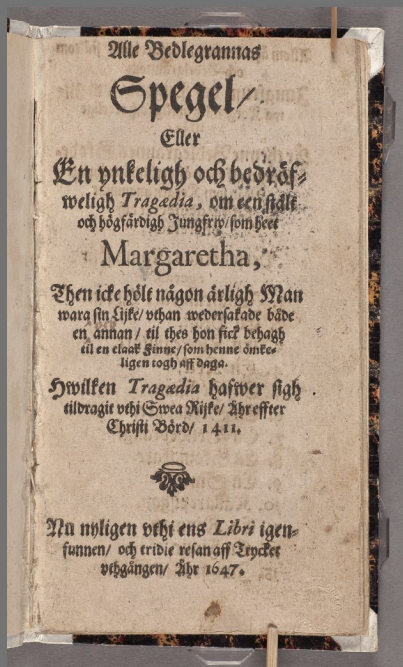 Alle Bedlegrannas
Spegel/
Eller
En ynkeligh och bedröf-
weligh Tragædia, om een stålt
och högfärdigh Jungfrw/ som heet
Margaretha,
Then icke hölt någon ärligh Man
wara sin Lijke/ vthan wedersakade både
en annan/ til thes hon fick behagh
til en elaak Finne/ som henne ömke-
ligen togh aff daga.
Hwilken Tragædia hafwer sigh
tildragit vthi Swea Rijke/ Åhr effter
Christi Börd/ 1411.
Nu nyligen vthi ens Libri igen-
funnen/ och tridie resan aff Trycket
vthgången/ Åhr 1647.